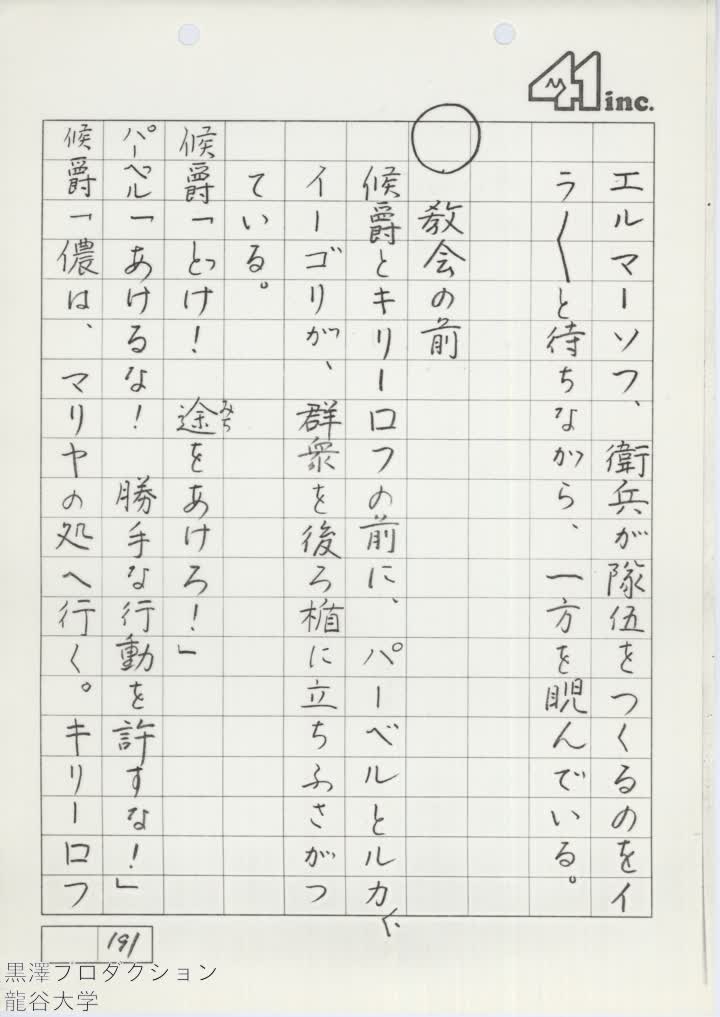 41 inc.
エルマーソフ、衛兵が隊伍をつくるのをイ
ラ〳〵と待ちながら、一方を睨んでいる。
○ 教会の前
侯爵とキリーロフの前に、パーベルとルカ、
イーゴリが、群衆を後ろ楯に立ちふさがっ
ている。
侯爵「どけ！ 途をあけろ！」
みち
パーベル「あけるな！ 勝手な行動を許すな！」
侯爵「儂は、マリヤの処へ行く。キリーロフ
191
黒澤プロダクション
龍谷大学